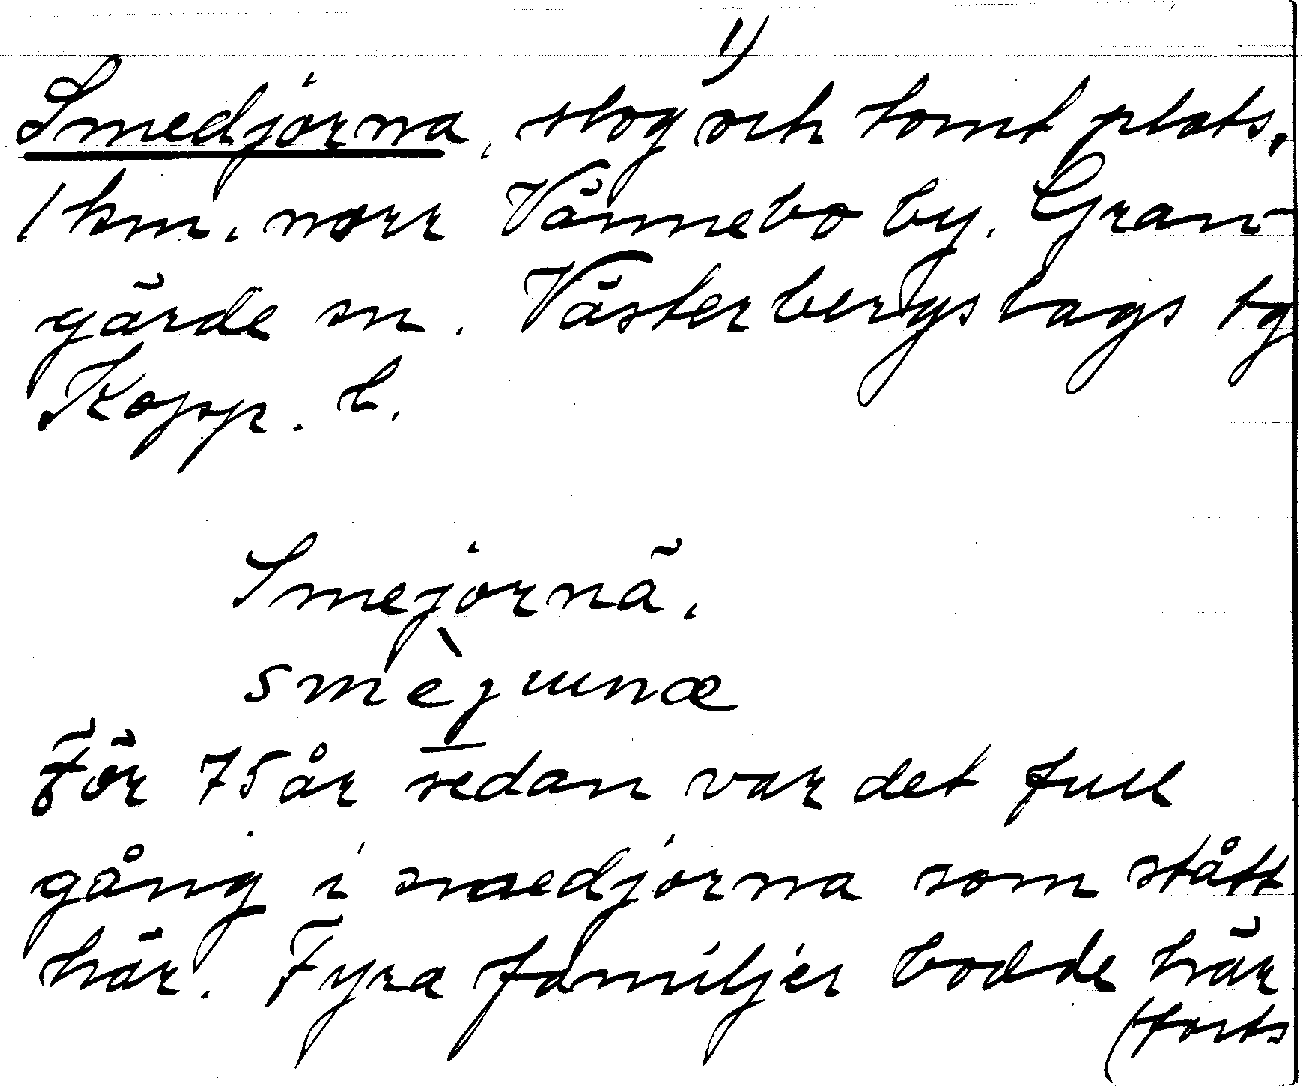 1)
Smedjorna, slog och tomt plats,
1 km. norr Vännebo by. Gran-
gärde sn. Västerbergslags tg
Kopp. l.
Smejornä.
smèjɯnæ
För 75 år sedan var det full
gång i smedjorna som stått
här. Fyra familjer bodde här
(forts